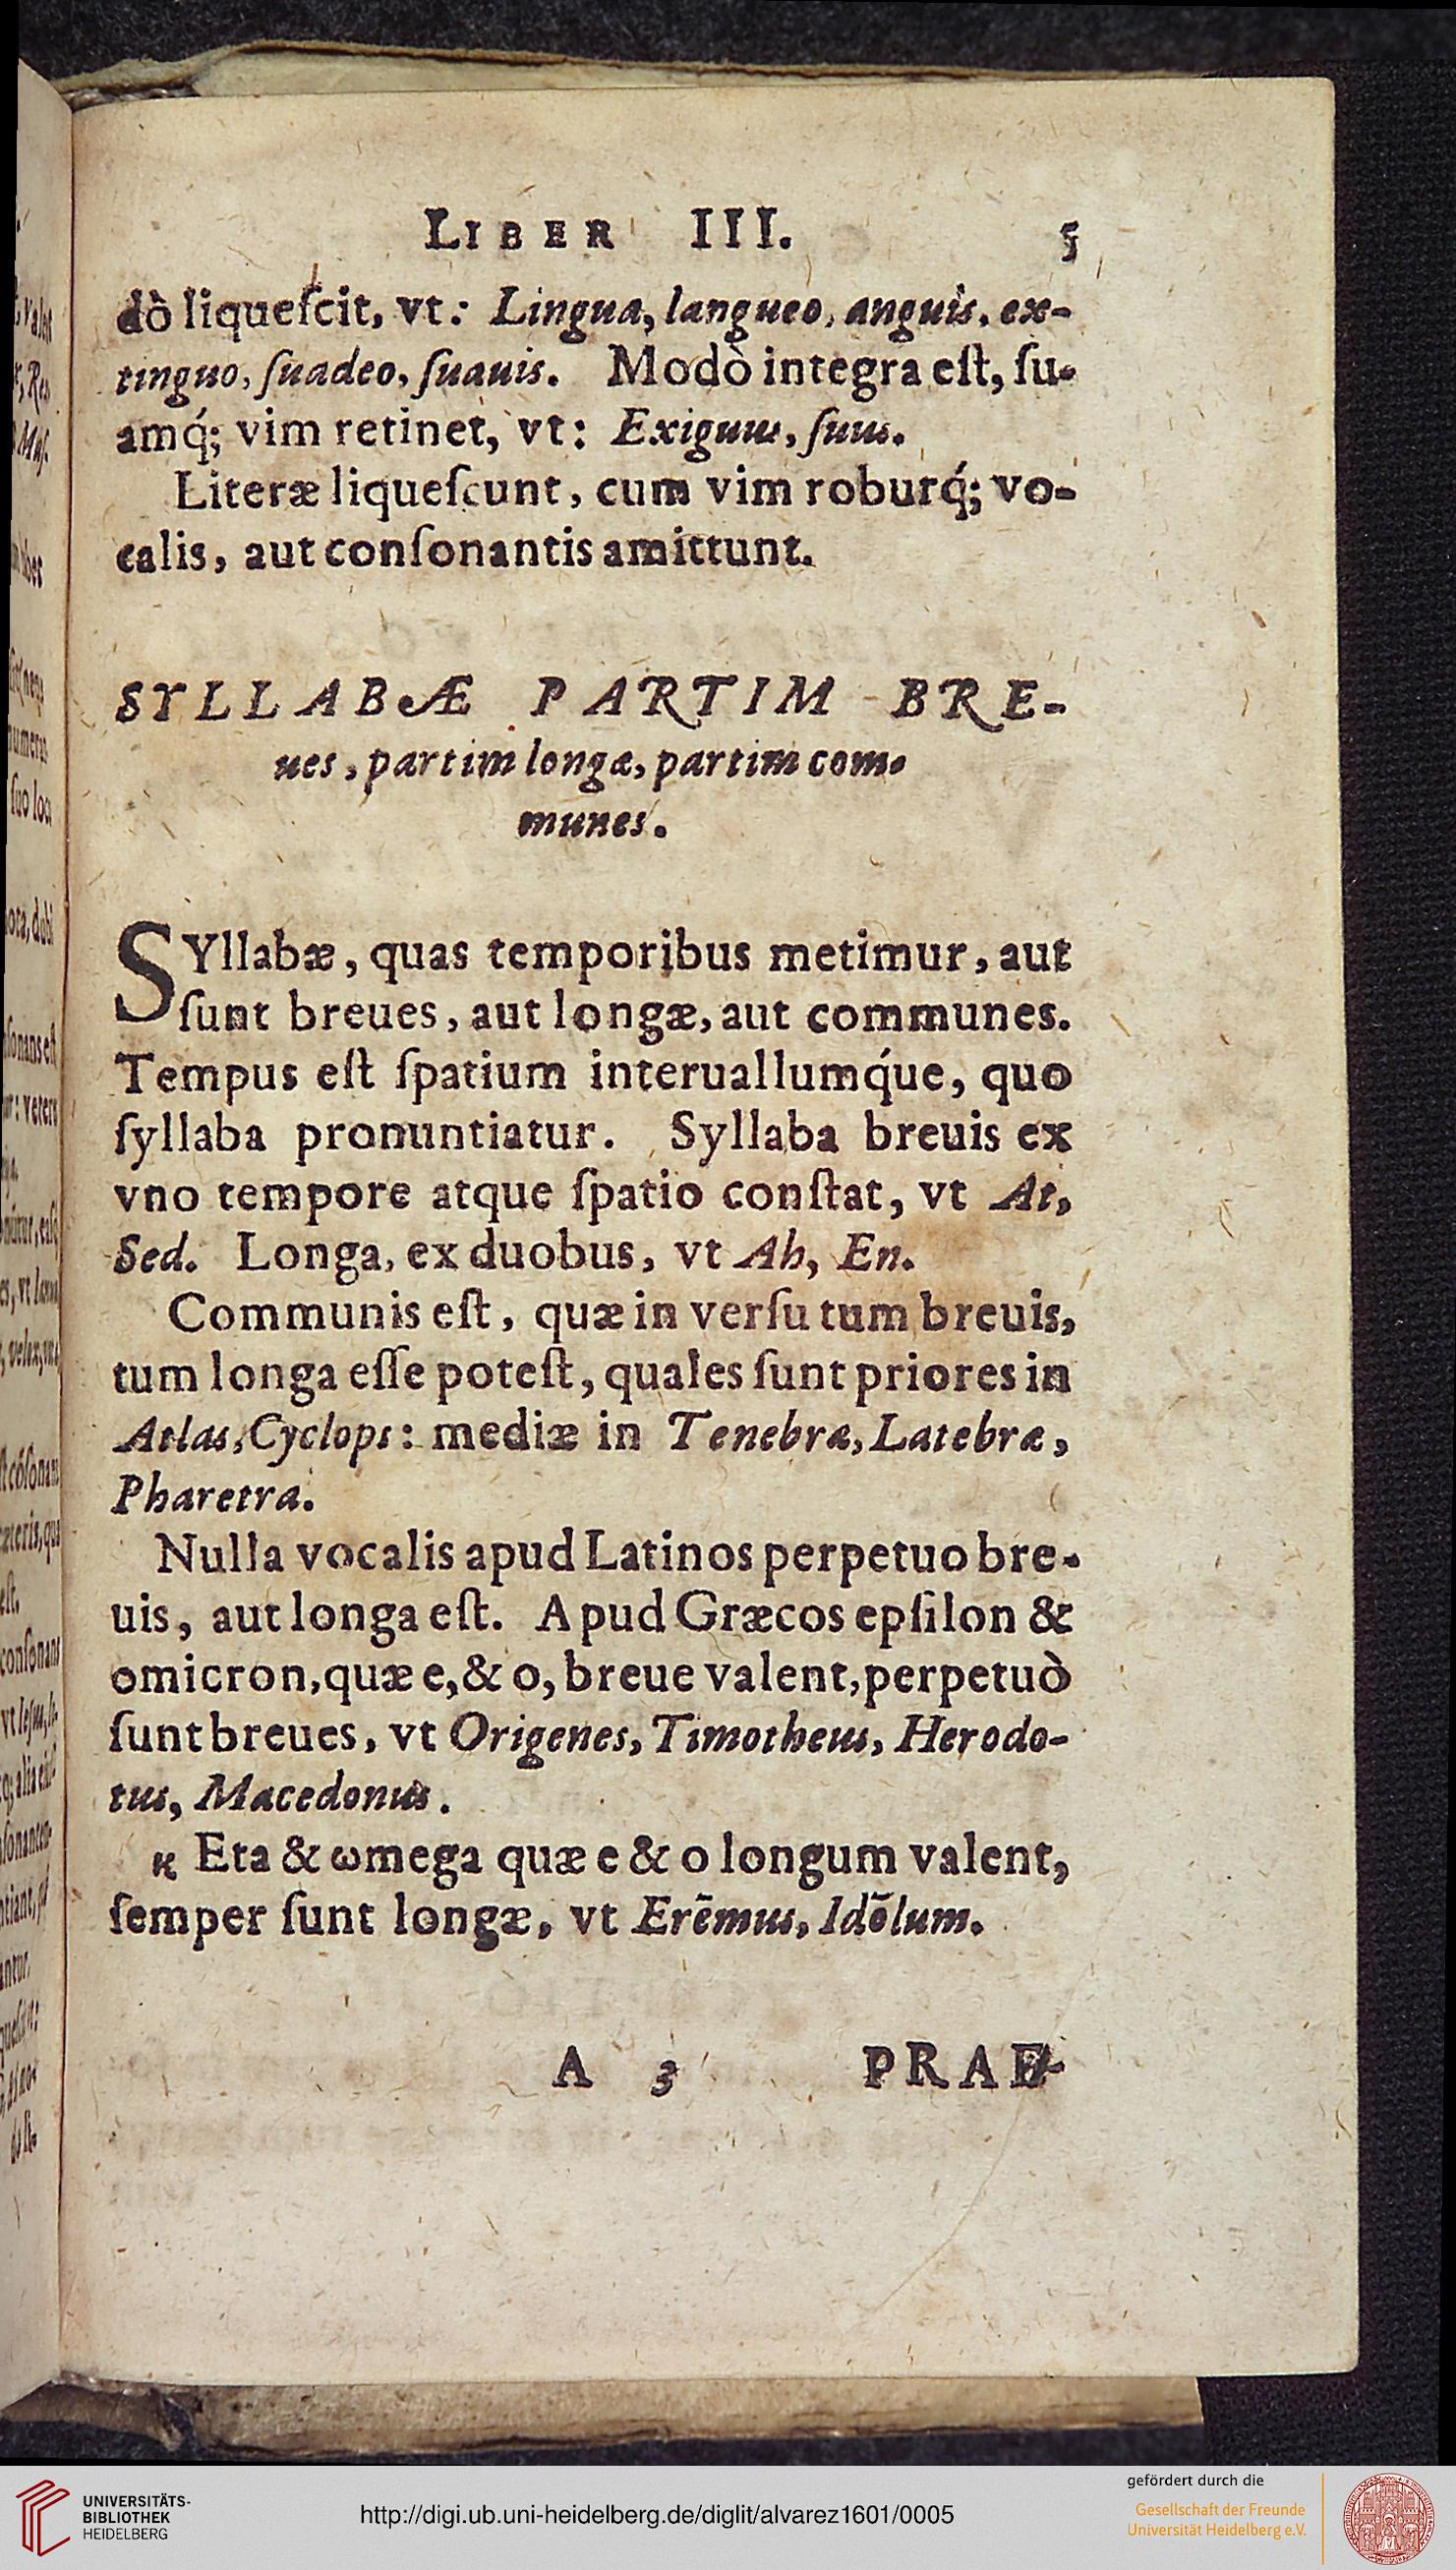 LIBER III. 5
dò liqueſcit, vt: Lingua, langueo, anguis, ex-
tinguo, ſuadeo, ſuauis. Modò integra eſt, ſu-
amq́; vim retinet, vt: Exiguus, ſuus.
Literæ liqueſcunt, cum vim roburq́; vo-
calis, aut conſonantis amittunt.
SYLLABÆ PARTIM BRE-
ues, partim longæ, partim com-
munes.
SYllabæ, quas temporibus metimur, aut
ſunt breues, aut longæ, aut communes.
Tempus eſt ſpatium interuallumq́ue, quo
ſyllaba pronuntiatur. Syllaba breuis ex
vno tempore atque ſpatio conſtat, vt At,
Sed. Longa, ex duobus, vt Ah, En.
Communis eſt, quæ in verſu tum breuis,
tum longa eſſe poteſt, quales ſunt priores in
Atlas, Cyclops: mediæ in Tenebræ, Latebræ,
Pharetra.
Nulla vocalis apud Latinos perpetuo bre-
uis, aut longa eſt. Apud Græcos epſilon &
omicron, quæ e, & o, breue valent, perpetuò
ſunt breues, vt Origenes, Timotheus, Herodo-
tus, Macedonus.
Eta & ωmega quæ e & o longum valent,
ſemper ſunt longæ, vt Erẽmus, Idõlum.
A 3 PRAE-
UNIVERSITÄTS-
BIBLIOTHEK
HEIDELBERG
http://digi.ub.uni-heidelberg.de/diglit/alvarez1601/0005
gefördert durch die
Gesellschaft der Freunde
Universität Heidelberg e.V.